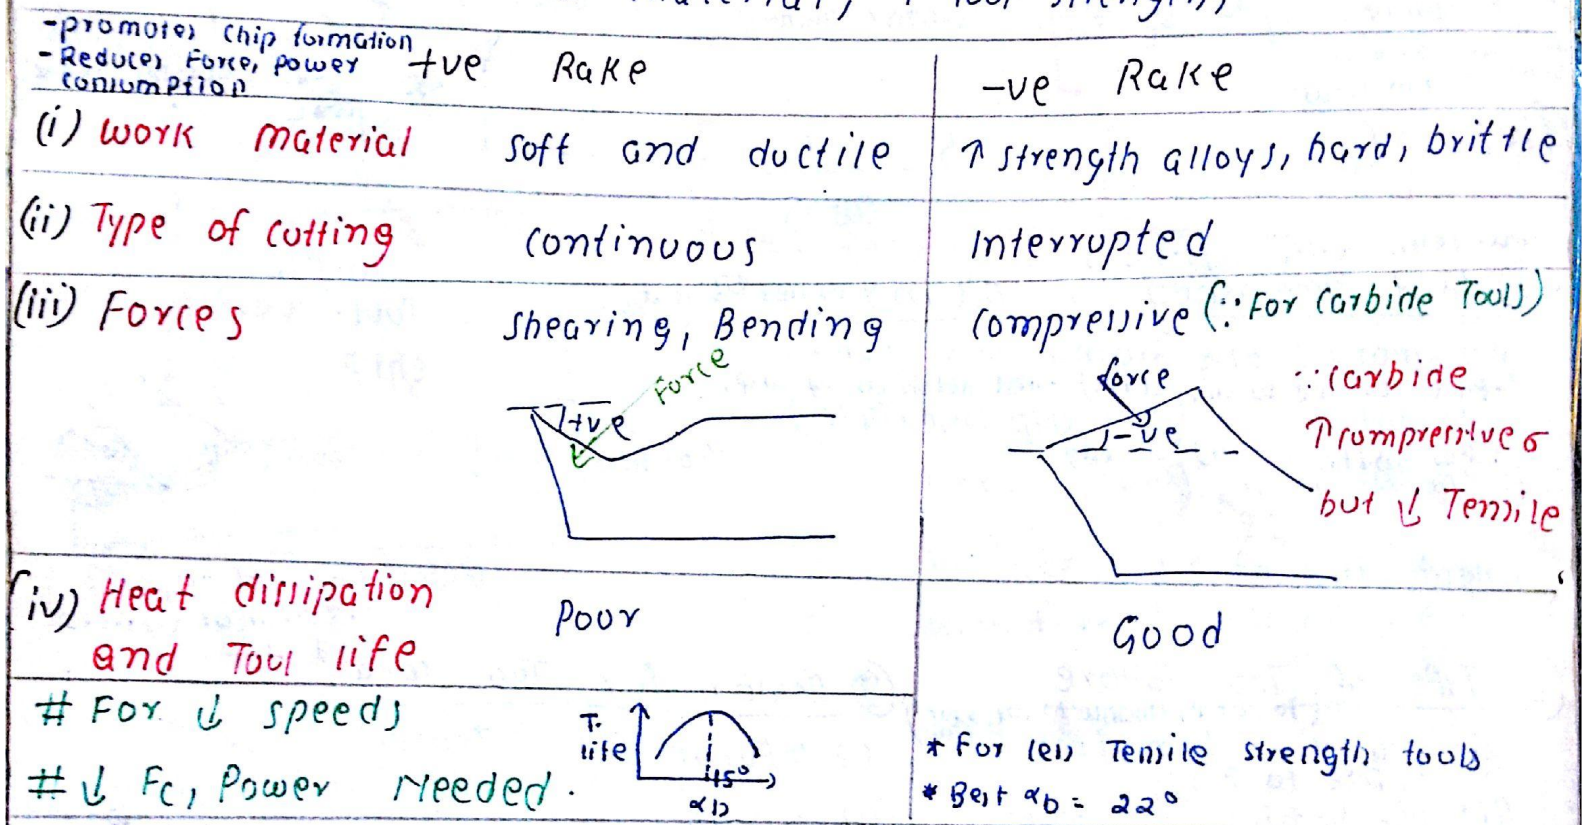 material, ↑ tool strength,
-promotes chip formation
- Reduces Force, power
consumption
+ve Rake
-ve Rake
(i) work material soft and ductile ↑ strength alloys, hard, brittle
(ii) Type of cutting continuous Interrupted
(iii) Forces shearing, Bending compressive (∵ For carbide Tools)
Force
+ve
force
-ve
∵ carbide
↑ compressive σ
but ↓ Tensile
(iv) Heat dissipation
and Tool life
Poor
Good
# For ↓ speeds
# ↓ Fc, Power Needed.
T.
life
15°
αb
* For less Tensile strength tools
* Best αb = 22°